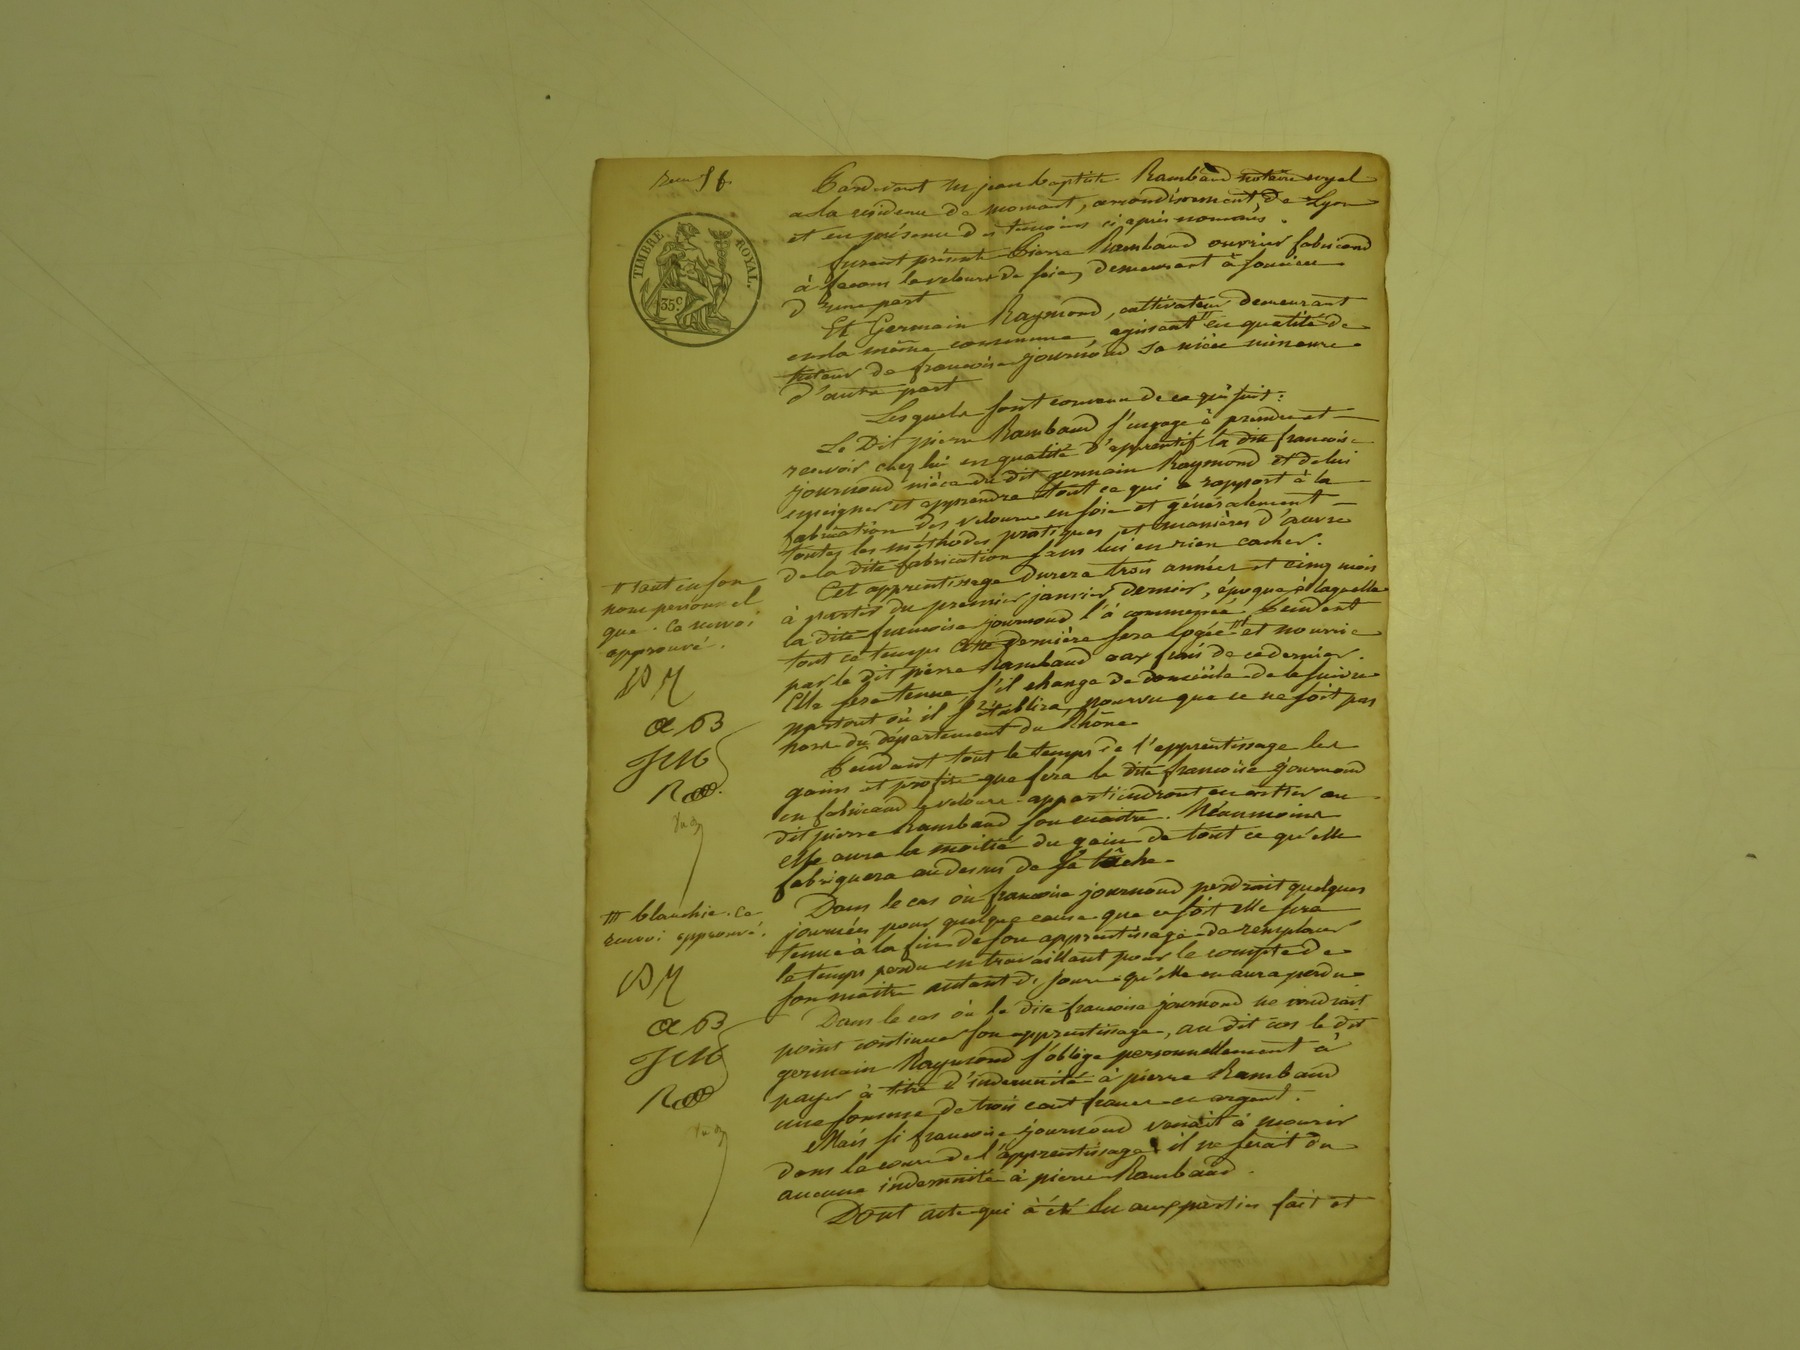 Reçu 5 f
TIMBRE ROYAL.
35 c.
Pardevant Me jean baptiste Rambaud notaire royal
a la residence de mornant, arrondissement de Lyon
et en présence des temoins ci après nommés.
furent présents Pierre Rambaud ouvrier fabricand
à facons le velours de soie, demeurant à
d'une part
Et Germain Raymond, cultivateur demeurant
en la même commune, agissant # en qualité de
tuteur de francoise journoud sa nièce mineure
d'autre part
Lesquels sont convenu de ce qui suit:
Le Dit pierre Rambaud s'engage à prendre et
recevoir chez lui en qualité d'apprentif la dite francoise
journoud nièce du dit germain Raymond et de lui
enseigner et apprendre tout ce qui a rapport à la
fabrication des velours en soie et généralement
toutes les méthodes pratiques et manières d'œuvre
de la dite fabrication sans lui en rien cacher.
Cet apprentissage durera trois années et cinq mois
à partir du premier janvier dernier, époque à laquelle
la dite francoise journoud l'à commencé. Pendant
tout ce temps cette dernière sera logée ## et nourrie
par le dit pierre Rambaud aux frais de ce dernier.
Elle sera tenue, s'il change de domicile de le suivre
partout où il s'établira, pourvu que ce ne soit pas
hors du département du Rhône
Pendant tout le temps de l'apprentissage les
gains et profits que fera la dite francoise journoud
en fabricand velours appartiendront en entier au
dit pierre Rambaud son maitre. Néanmoins
elle aura la moitié du gain de tout ce qu'elle
fabriquera au dessus de sa tâche
Dans le cas où francoise journoud perdrait quelques
journées pour quelque cause que ce soit elle sera
tenue à la fin de son apprentissage de remplacer
le temps perdu en travaillant pour le compte de
son maitre autant de jours qu'elle en aura perdu
Dans le cas où la dite francoise journoud ne voudrait
point continuer son apprentissage, au dit cas le dit
germain Raymond s'oblige personnellement à
payer à titre d'indemnité à pierre Rambaud
une somme de trois cent francs en argent.
Mais si francoise journoud venait à mourir
dans le cours de l'apprentissage il ne serait du
aucune indemnité à pierre Rambaud.
Dont acte qui à été lu aux parties fait et
# tant en son
nom personnel
que. Ce renvoi
approuvé.
## blanchie. Ce
renvoi approuvé.